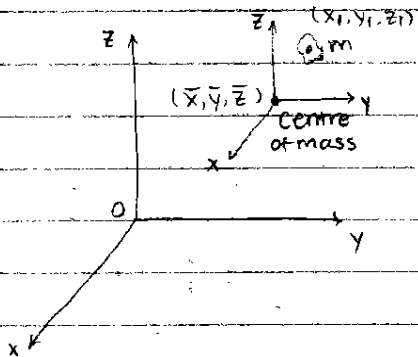 (x₁, y₁, z₁)
z
z
m
(x̄, ȳ, z̄)
y
centre
of mass
x
O
y
x